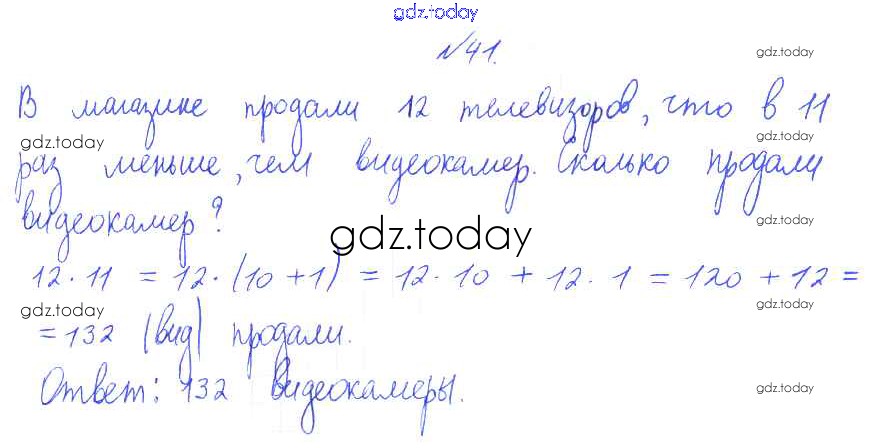 gdz.today
№41.
gdz.today
В магазине продали 12 телевизоров, что в 11
gdz.today gdz.today
раз меньше, чем видеокамер. Сколько продали
видеокамер?
gdz.today
gdz.today
12 · 11 = 12 · (10 + 1) = 12 · 10 + 12 · 1 = 120 + 12 =
gdz.today gdz.today
= 132 (вид) продали.
Ответ: 132 видеокамеры.
gdz.today